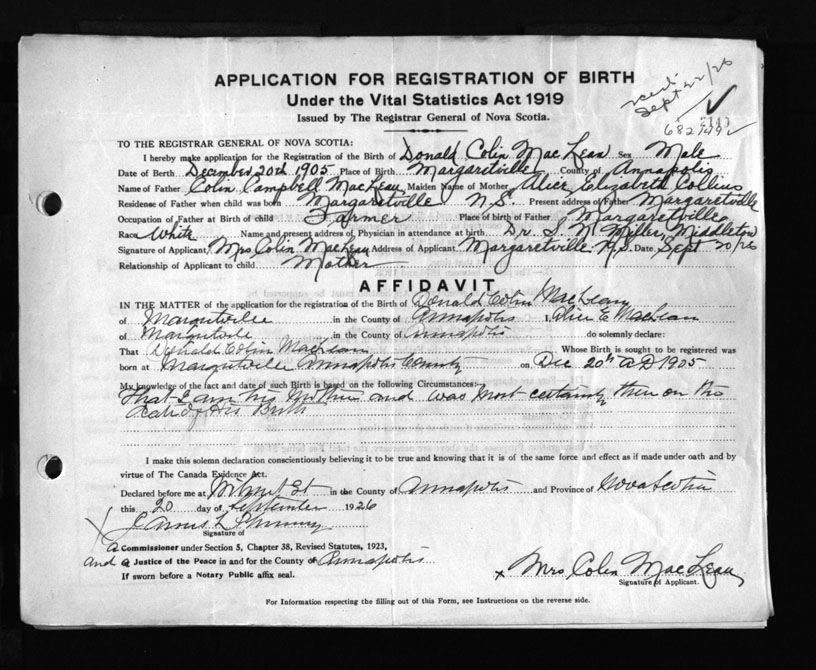 APPLICATION FOR REGISTRATION OF BIRTH
Under the Vital Statistics Act 1919
Issued by The Registrar General of Nova Scotia.
Sept 22/26
TO THE REGISTRAR GENERAL OF NOVA SCOTIA:
I hereby make application for the Registration of the Birth of Donald Colin MacLean Sex Male
Date of Birth December 20th 1905 Place of Birth Margaretville County of Annapolis
Name of Father Colin Campbell MacLean Maiden Name of Mother Alice Elizabeth Collins
Residence of Father when child was born Margaretville N.S. Present address of Father Margaretville
Occupation of Father at Birth of child Farmer Place of birth of Father Margaretville
Race White Name and present address of Physician in attendance at birth Dr. S. N. Miller, Middleton
Signature of Applicant Mrs Colin MacLean Address of Applicant Margaretville N.S. Date Sept 20/26
Relationship of Applicant to child Mother
AFFIDAVIT
IN THE MATTER of the application for the registration of the Birth of Donald Colin MacLean
of Margretville in the County of Annapolis I, Alice E MacLean
of Margretville in the County of Annapolis do solemnly declare:
That Donald Colin MacLean Whose Birth is sought to be registered was
born at Margretville Annapolis County on Dec 20th AD 1905
My knowledge of the fact and date of such Birth is based on the following Circumstances:
That I am his Mother and was most certainly then on the
date of his Birth
I make this solemn declaration conscientiously believing it to be true and knowing that it is of the same force and effect as if made under oath and by
virtue of The Canada Evidence Act.
Declared before me at Wilmot St in the County of Annapolis and Province of Nova Scotia
this 20 day of September 1926
Signature of
a Commissioner under Section 5, Chapter 38, Revised Statutes, 1923,
and a Justice of the Peace in and for the County of Annapolis
If sworn before a Notary Public affix seal.
x Mrs Colin MacLean
Signature of Applicant.
For Information respecting the filling out of this Form, see Instructions on the reverse side.